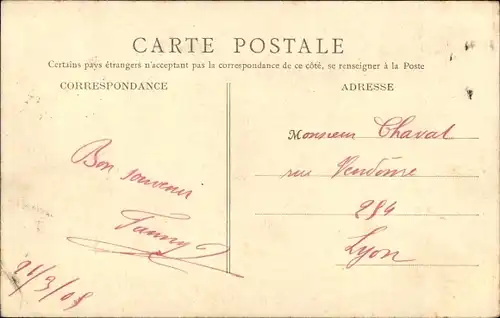 CARTE POSTALE
Certains pays étrangers n'acceptant pas la correspondance de ce côté, se renseigner à la Poste
CORRESPONDANCE
ADRESSE
Monsieur Chaval
rue Vendôme
284
Lyon
Bon souvenir
Fanny